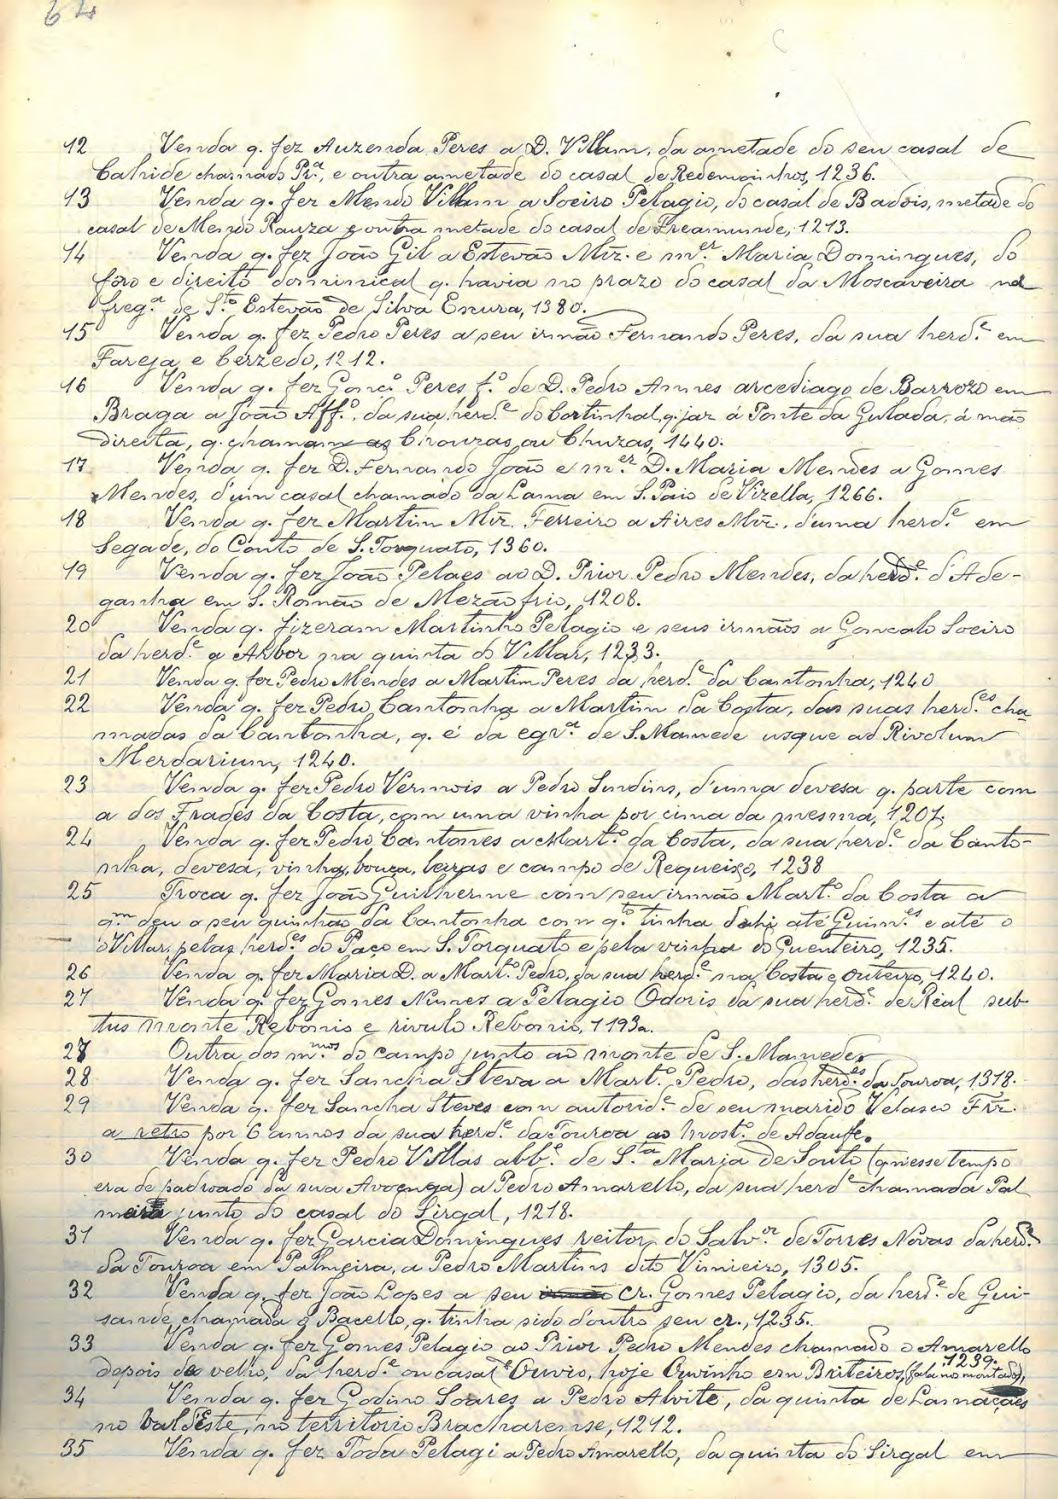 64
12 Venda q. fez Auzenda Peres a D. Villam, da ametade do seu casal de
Cahide chamado Pr.ª, e outra ametade do casal de Redemoinhos, 1236.
13 Venda q. fez Mendo Villam a Soeiro Pelagio, do casal de Badois, metade do
casal de Mendo Rauza e outra metade do casal de Freamunde, 1213.
14 Venda q. fez João Gil a Estevão Miz. e m.er Maria Domingues, do
foro e direito dominical q. havia no prazo do casal da Moscaveira na
freg.ª de S.to Estevão de Silva Escura, 1380.
15 Venda q. fez Pedro Peres a seu irmão Fernando Peres, da sua herd.e em
Fareja e Cerzedo, 1212.
16 Venda q. fez Gonç.o Peres f.o de D. Pedro Annes arcediago de Barrozo em
Braga a João Aff.o, da sua herd.e do Cortinhal, q. jaz á Ponte da Gulada, á mão
direita, q. chamam as Chouzas, ou Chuzas, 1440.
17 Venda q. fez D. Fernando João e m.er D. Maria Mendes a Gomes
Mendes, d'um casal chamado da Lama em S. Paio de Vizella, 1266.
18 Venda q. fez Martim Miz. Ferreiro a Aires Miz., d'uma herd.e em
Segade, do Couto de S. Torquato, 1360.
19 Venda q. fez João Pelaes ao D. Prior Pedro Mendes, da herd.e d'Ade-
ganha em S. Romão de Mezãofrio, 1208.
20 Venda q. fizeram Martinho Pelagio e seus irmãos a Goncalo Soeiro
da herd.e q Alvor na quinta do Villar, 1233.
21 Venda q. fez Pedro Mendes a Martim Peres da herd.e da Cantonha, 1240
22 Venda q. fez Pedro Cantonha a Martim da Costa, das suas herd.es cha
madas da Cantonha, q. é da egr.ª de S. Mamede usque ad Rivolum
Merdarium, 1240.
23 Venda q. fez Pedro Vermuis a Pedro Sindins, d'uma devesa q. parte com
a dos Frades da Costa, com uma vinha por cima da mesma, 1207.
24 Venda q. fez Pedro Cantones a Mart.o da Costa, da sua herd.e da Canto-
nha, devesa, vinha, bouça, terras e campo de Requeixo, 1238
25 Troca q. fez João Guilherme com seu irmão Mart.o da Costa a
q.m deu o seu quinhão da Cantonha com q.to tinha dahi até Guim.es e até o
o Villar, pelas herd.es do Paço em S. Torquato e pela vinha do Guenteiro, 1235.
26 Venda q. fez Maria D. a Mart.o Pedro, da sua herd.e na Costa e Outeiro, 1240.
27 Venda q. fez Gomes Nunes a Pelagio Odoris da sua herd.e de Rial sub-
tus monte Rebonio e rivulo Rebonio, 1193.
27 Outra dos m.mos do campo junto ao monte de S. Mamede.
28 Venda q. fez Sancha Steva a Mart.o Pedro, das herd.es da Touroa, 1318.
29 Venda q. fez Sancha Steves com autorid.e de seu marido Velasco Frz.
a retro por 6 annos da sua herd.e da Touroa ao Most.o de Adaufe.
30 Venda q. fez Pedro Villas abb.e de S.ta Maria de Souto (q n'esse tempo
era de padroado da sua Avoenga) a Pedro Amarello, da sua herd.e chamada Pal
meira junto do casal do Sirgal, 1218.
31 Venda q. fez Garcia Domingues reitor do Salv.or de Torres Novas da herd.e
da Touroa em Palmeira, a Pedro Martins dito Vimieiro, 1305.
32 Venda q. fez João Lopes a seu cr. Gomes Pelagio, da herd.e de Gui-
sande, chamada o Bacello, q. tinha sido d'outro seu cr., 1235.
33 Venda q. fez Gomes Pelagio ao Prior Pedro Mendes chamado o Amarello
depois do velho, da herd.e ou casal Ouvio, hoje Ouvinho em Briteiros, (fala no montado), 1239.
34 Venda q. fez Godino Soares a Pedro Alvite, da quinta de Lamaçaes
no Val d'Este, no territorio Bracharense, 1212.
35 Venda q. fez Toda Pelagi a Pedro Amarello, da quinta do Sirgal em